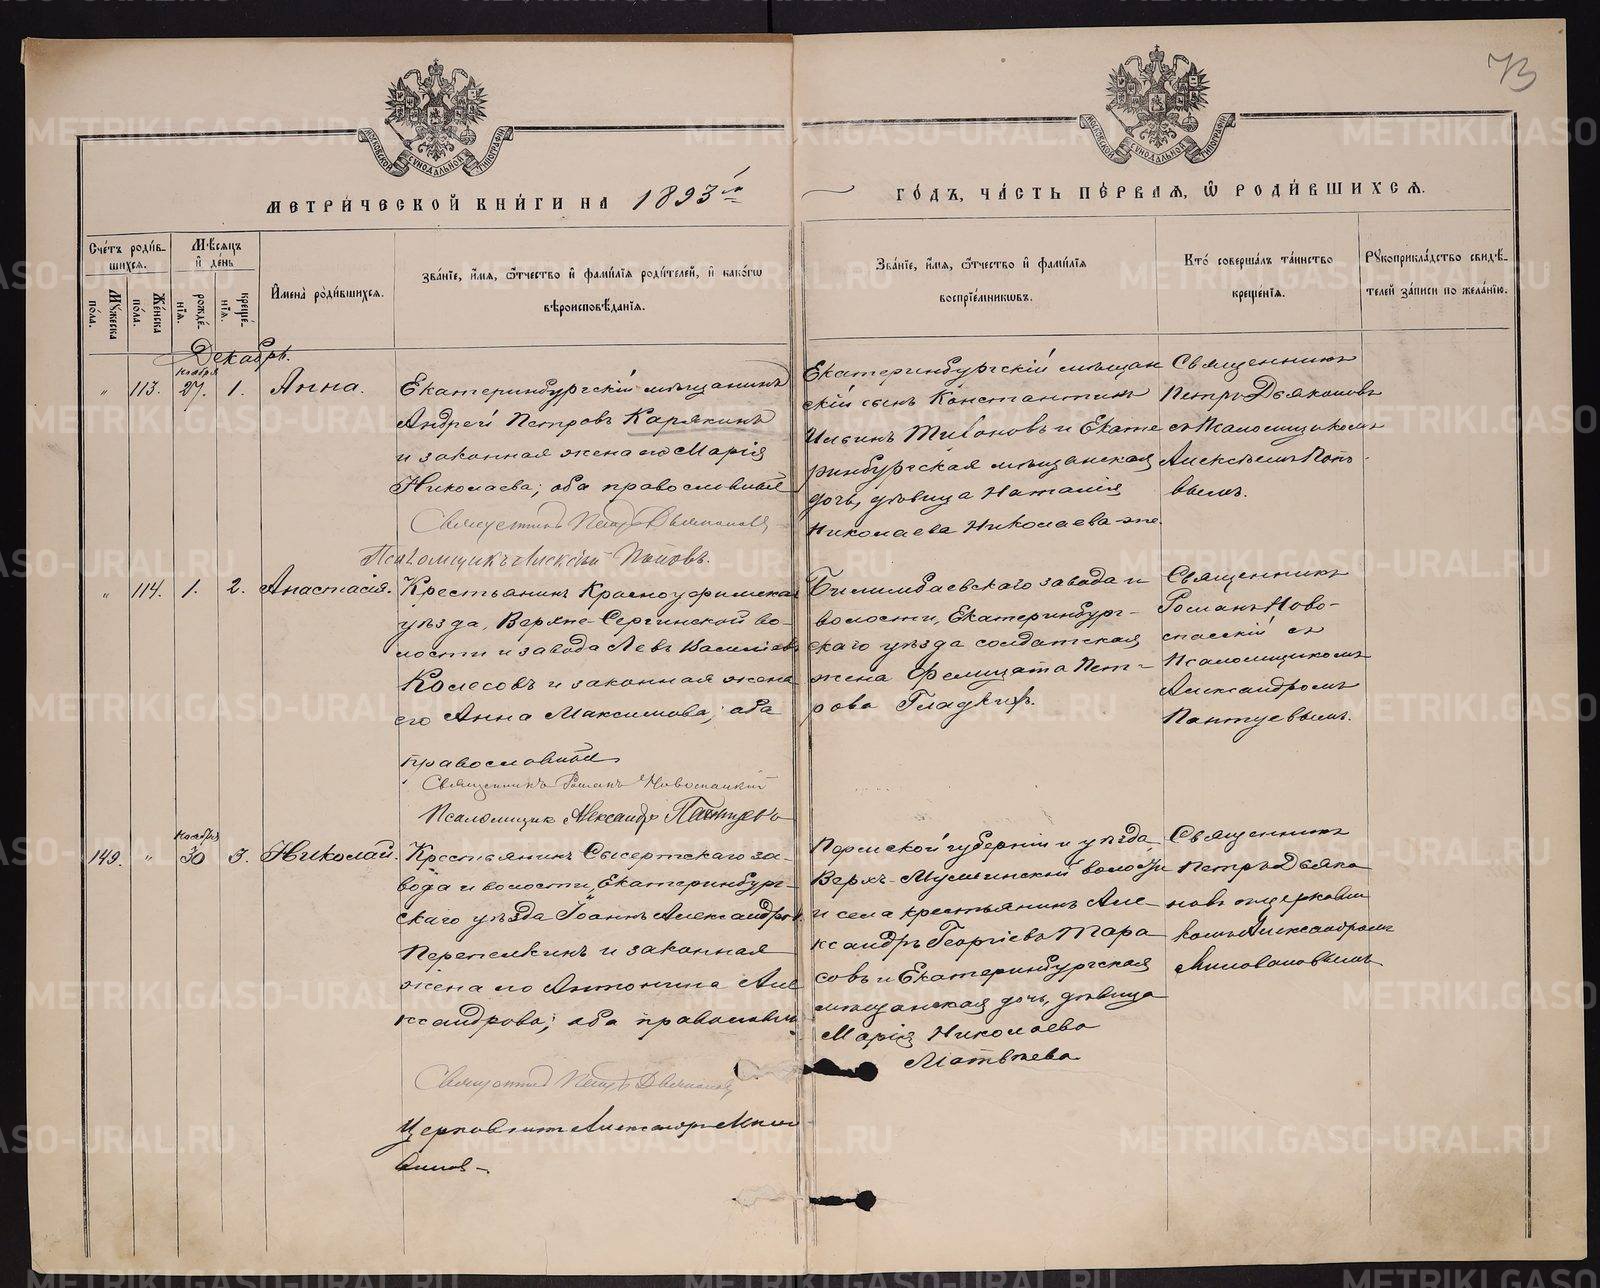 73
МОСКОВСКОЙ СУНОДАЛЬНОЙ ТИПОГРАФІИ
МОСКОВСКОЙ СУНОДАЛЬНОЙ ТИПОГРАФІИ
МЕТРИ́ЧЕСКОЙ КНИ́ГИ НА 1893 й
ГО́ДЪ, ЧА́СТЬ ПЕ́РВАЯ, Ѡ РОДИ́ВШИХСЯ.
Сче́тъ роди́в-
шихся.
Му́жеска по́ла.
Же́нска по́ла.
Мѣ́сяцъ
и де́нь
рожде́-
нія.
креще́-
нія.
Имена̀ роди́вшихся.
Зва́ніе, и́мя, ѻ́тчество и фами́лія роди́телей, и како́гѡ
вѣроисповѣ́данія.
Зва́ніе, и́мя, ѻ́тчество и фами́лія
воспріе́мниковъ.
Кто̀ соверша́лъ та́инство
креще́нія.
Рукоприкла́дство свидѣ́-
телей за́писи по жела́нію.
Декабрь.
ноября
" 113. 27. 1. Анна.
Екатеринбургскій мѣщанинъ
Андрей Петровъ Карякинъ
и законная жена его Марія
Николаева; оба православные
Священникъ Петръ Дьяконовъ
Псаломщикъ Алексѣй Поповъ.
Екатеринбургскій мѣщан
скій сынъ Константинъ
Ильинъ Тихоновъ и Екате
ринбургская мѣщанская
дочь, дѣвица Наталія
Николаева Николаева-же.
Священникъ
Петръ Дьяконовъ
съ Псаломщикомъ
Алексѣемъ Попо-
вымъ.
" 114. 1. 2. Анастасія.
Крестьянинъ Красноуфимска
уѣзда, Верхне-Сергинской во-
лости и завода Левъ Васильевъ
Колесовъ и законная жена
его Анна Максимова; оба
православные
Священникъ Романъ Новоспасскій
Псаломщик Александръ Пантуевъ
Билимбаевскаго завода и
волости, Екатеринбург-
скаго уѣзда солдатская
жена Фелицата Пет-
рова Гладкихъ.
Священникъ
Романъ Ново-
спасскій съ
Псаломщикомъ
Александромъ
Пантуевымъ.
ноября
149. " 30 3. Николай.
Крестьянинъ Сысертскаго за-
вода и волости, Екатеринбург-
скаго уѣзда Іоаннъ Александров
Перепелкинъ и законная
жена его Антонина Але
ксандрова; оба православн
Священникъ Петръ Дьяконовъ
Церковникъ Александръ Мило
вановъ
Пермской губерніи и уѣзда,
Верхъ-Муллинской волости
и села крестьянинъ Але
ксандръ Георгіевъ Тара
совъ и Екатеринбургская
мѣщанская дочь, дѣвица
Марія Николаева
Матвѣева
Священникъ
Петръ Дьяко
новъ съ церковни
комъ Александромъ
Миловановымъ